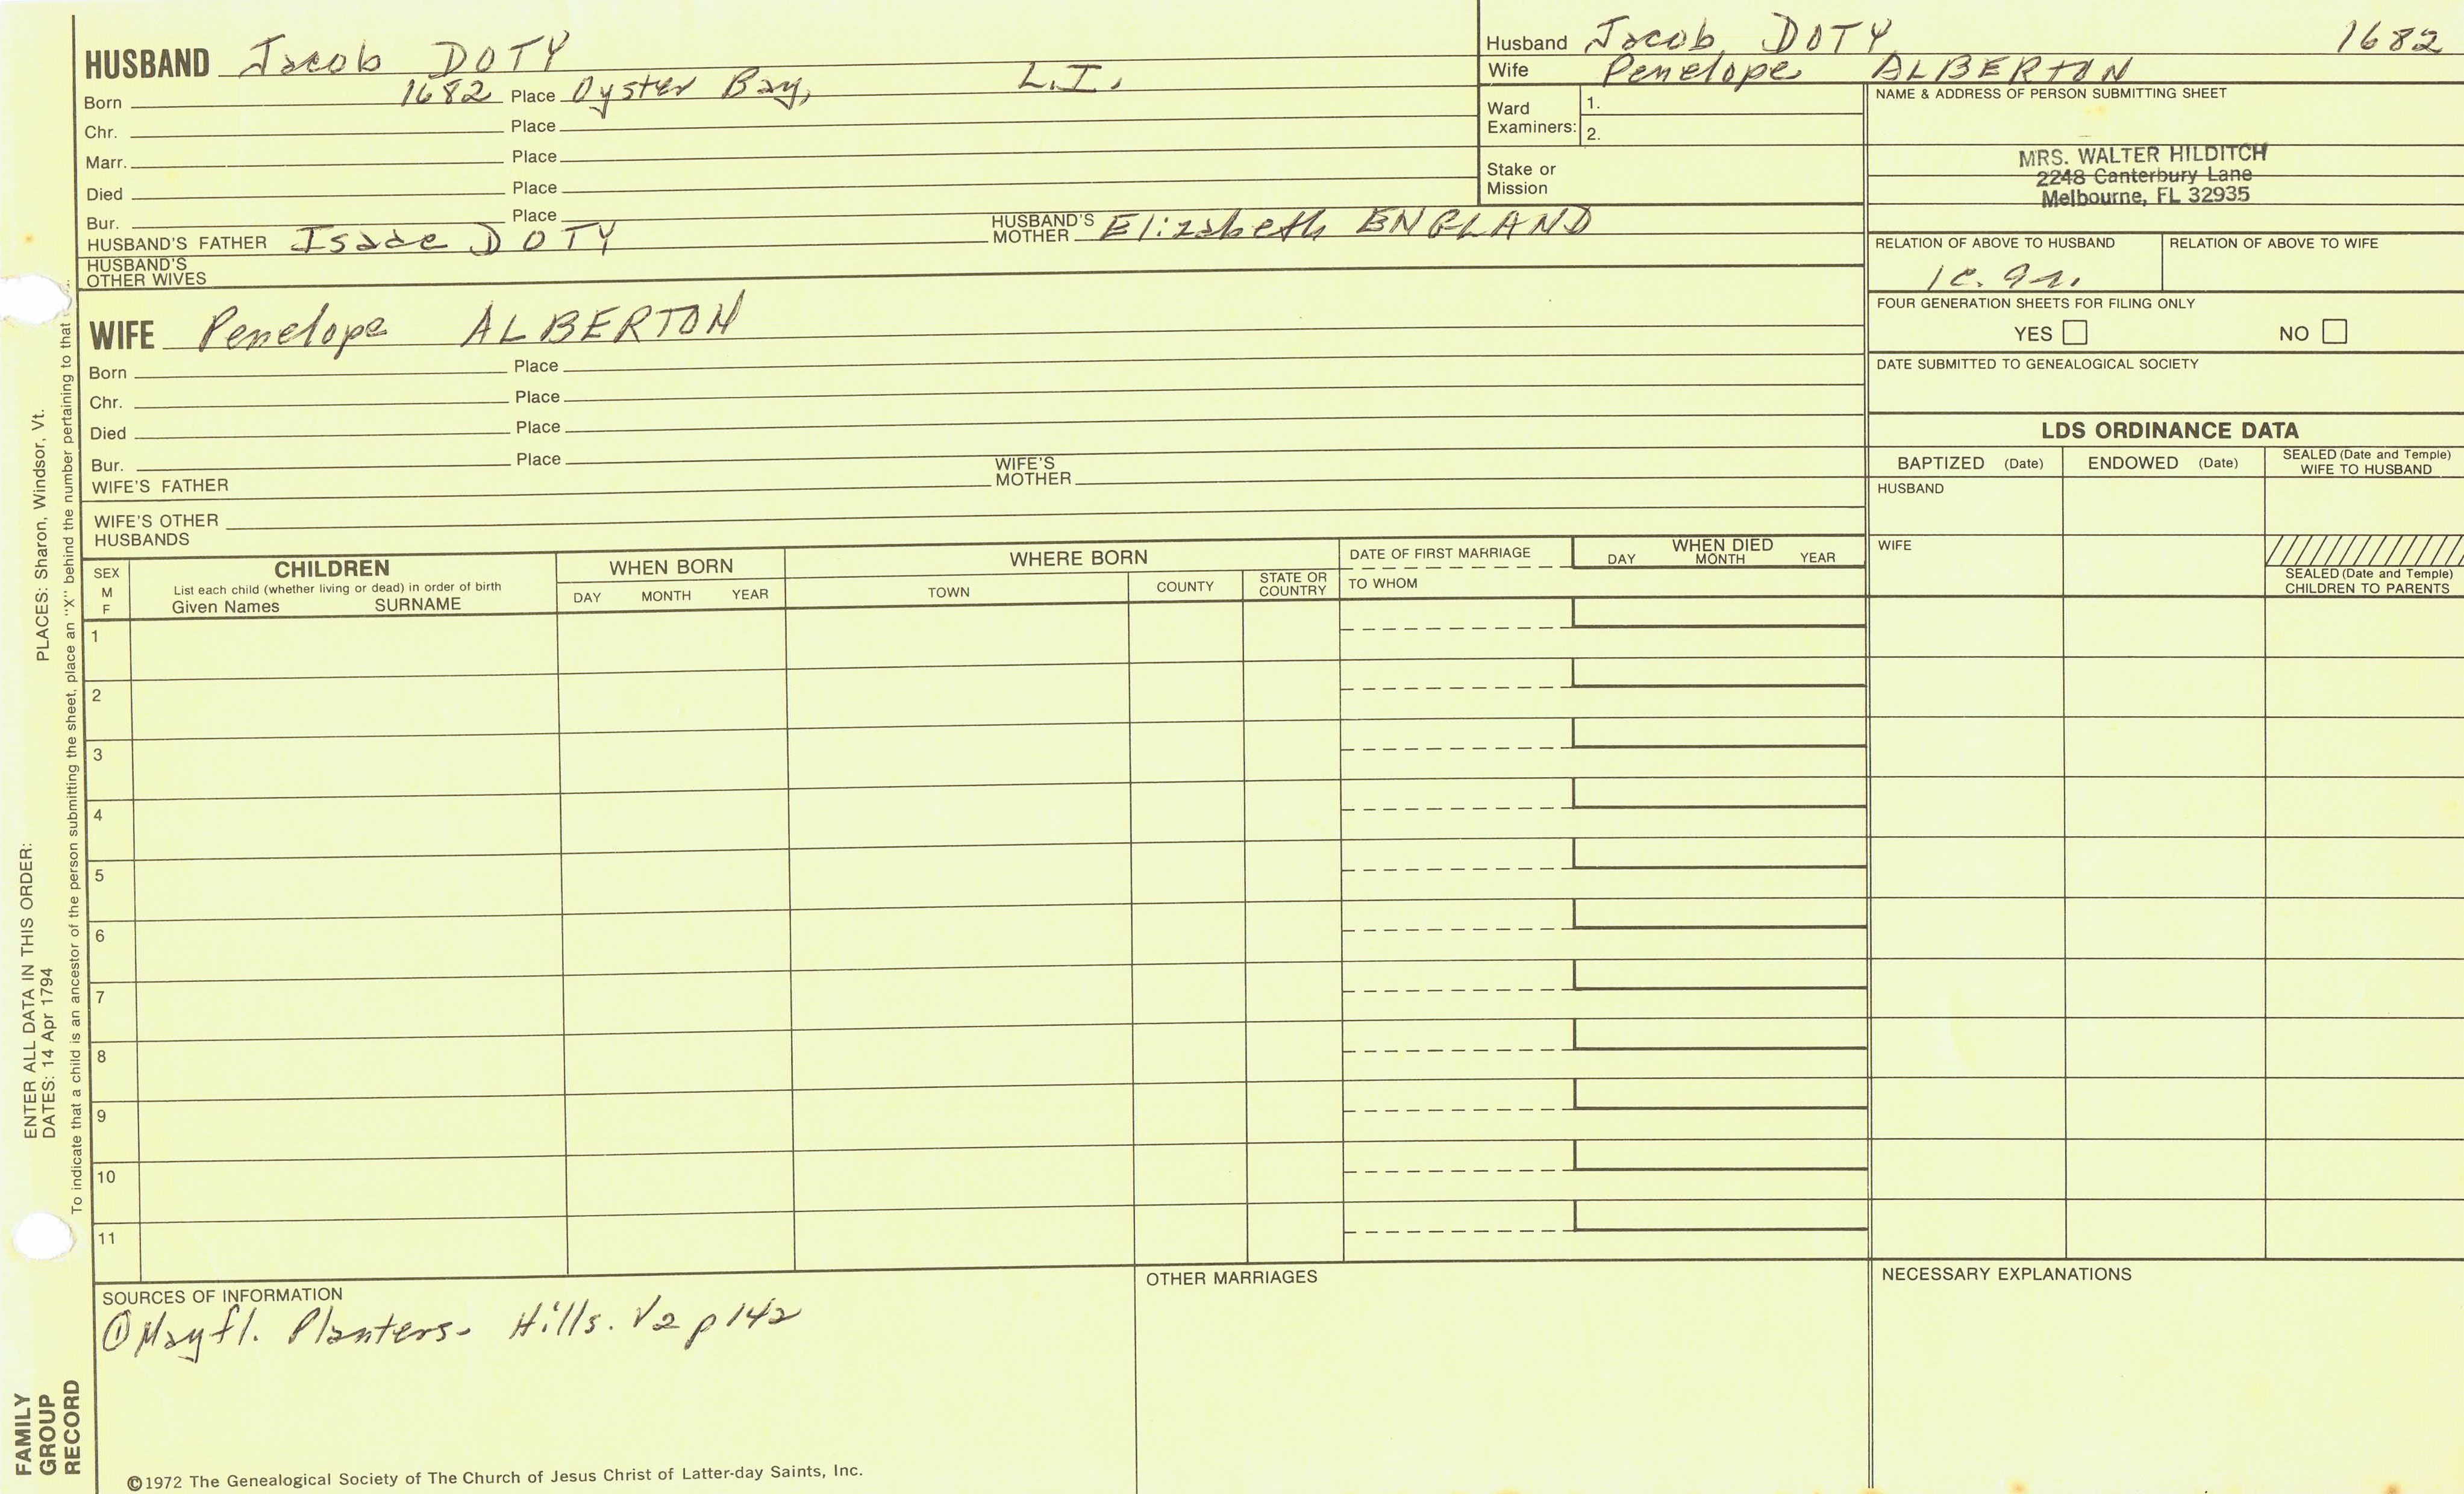 HUSBAND Jacob DOTY
Born 1682 Place Oyster Bay, L.I.
Chr. Place
Marr. Place
Died Place
Bur. Place
HUSBAND'S FATHER Isaac DOTY HUSBAND'S MOTHER Elizabeth ENGLAND
HUSBAND'S OTHER WIVES
WIFE Penelope ALBERTON
Born Place
Chr. Place
Died Place
Bur. Place
WIFE'S FATHER WIFE'S MOTHER
WIFE'S OTHER HUSBANDS
Husband Jacob DOTY 1682
Wife Penelope ALBERTON
Ward Examiners: 1.
2.
Stake or Mission
NAME & ADDRESS OF PERSON SUBMITTING SHEET
MRS. WALTER HILDITCH
2248 Canterbury Lane
Melbourne, FL 32935
RELATION OF ABOVE TO HUSBAND RELATION OF ABOVE TO WIFE
FOUR GENERATION SHEETS FOR FILING ONLY
YES NO
DATE SUBMITTED TO GENEALOGICAL SOCIETY
LDS ORDINANCE DATA
BAPTIZED (Date) ENDOWED (Date) SEALED (Date and Temple) WIFE TO HUSBAND
HUSBAND
WIFE
SEALED (Date and Temple) CHILDREN TO PARENTS
SEX M F
CHILDREN
List each child (whether living or dead) in order of birth
Given Names SURNAME
WHEN BORN
DAY MONTH YEAR
WHERE BORN
TOWN COUNTY STATE OR COUNTRY
DATE OF FIRST MARRIAGE
TO WHOM
WHEN DIED
DAY MONTH YEAR
1
2
3
4
5
6
7
8
9
10
11
SOURCES OF INFORMATION
① Mayfl. Planters- Hills. V2 p142
OTHER MARRIAGES
NECESSARY EXPLANATIONS
©1972 The Genealogical Society of The Church of Jesus Christ of Latter-day Saints, Inc.
FAMILY
GROUP
RECORD
ENTER ALL DATA IN THIS ORDER:
DATES: 14 Apr 1794
PLACES: Sharon, Windsor, Vt.
To indicate that a child is an ancestor of the person submitting the sheet, place an "X" behind the number pertaining to that